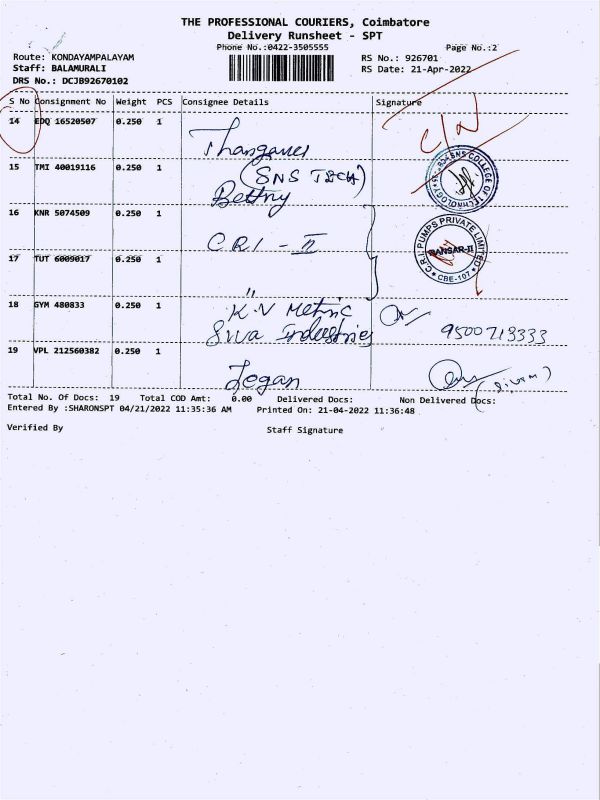 THE PROFESSIONAL COURIERS, Coimbatore
Delivery Runsheet - SPT
Phone No.:0422-3505555 Page No.:2
Route: KONDAYAMPALAYAM RS No.: 926701
Staff: BALAMURALI RS Date: 21-Apr-2022
DRS No.: DCJB92670102
S No Consignment No Weight PCS Consignee Details Signature
14 EDQ 16520507 0.250 1
C/N
15 TMI 40019116 0.250 1 (SNS TECH)
SNS COLLEGE OF TECHNOLOGY
16 KNR 5074509 0.250 1
C.R.I - II
C.R.I. PUMPS PRIVATE LIMITED
CBE-107
17 TUT 6009017 0.250 1
"
18 GYM 480833 0.250 1 K.V Metric
Siva Industries 9500713333
19 VPL 212560382 0.250 1
Jegan
Total No. Of Docs: 19 Total COD Amt: 0.00 Delivered Docs: Non Delivered Docs:
Entered By :SHARONSPT 04/21/2022 11:35:36 AM Printed On: 21-04-2022 11:36:48
Verified By Staff Signature